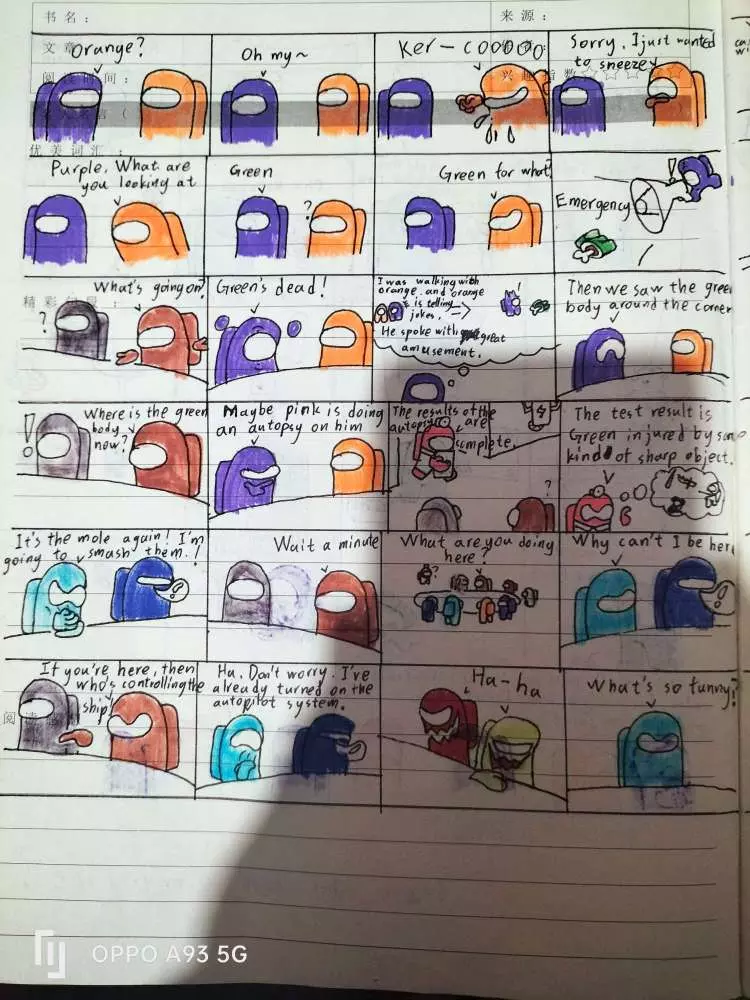 书名：
来源：
文章
Orange?
Oh my~
Ker-cooooo
Sorry, I just wanted
to sneeze
兴趣指数☆☆☆☆☆
优美词汇：
Purple. What are
you looking at
Green
?
Green for what?
Emergency
!
精彩
What's going on?
?
Green's dead!
I was walking with
orange. and orange
is telling
jokes.
He spoke with great
amusement.
Then we saw the green
body around the corner
!
Where is the green
body
now?
Maybe pink is doing
an autopsy on him
The results of the
autopsy are
complete
?
The test result is
Green injured by some
kind of sharp object.
It's the mole again! I'm
going to smash them.!
Wait a minute
What are you doing
here?
?
Why can't I be here
If you're here, then
who's controlling the
ship?
Ha, Don't worry. I've
already turned on the
autopilot system.
Ha-ha
What's so funny?
OPPO A93 5G